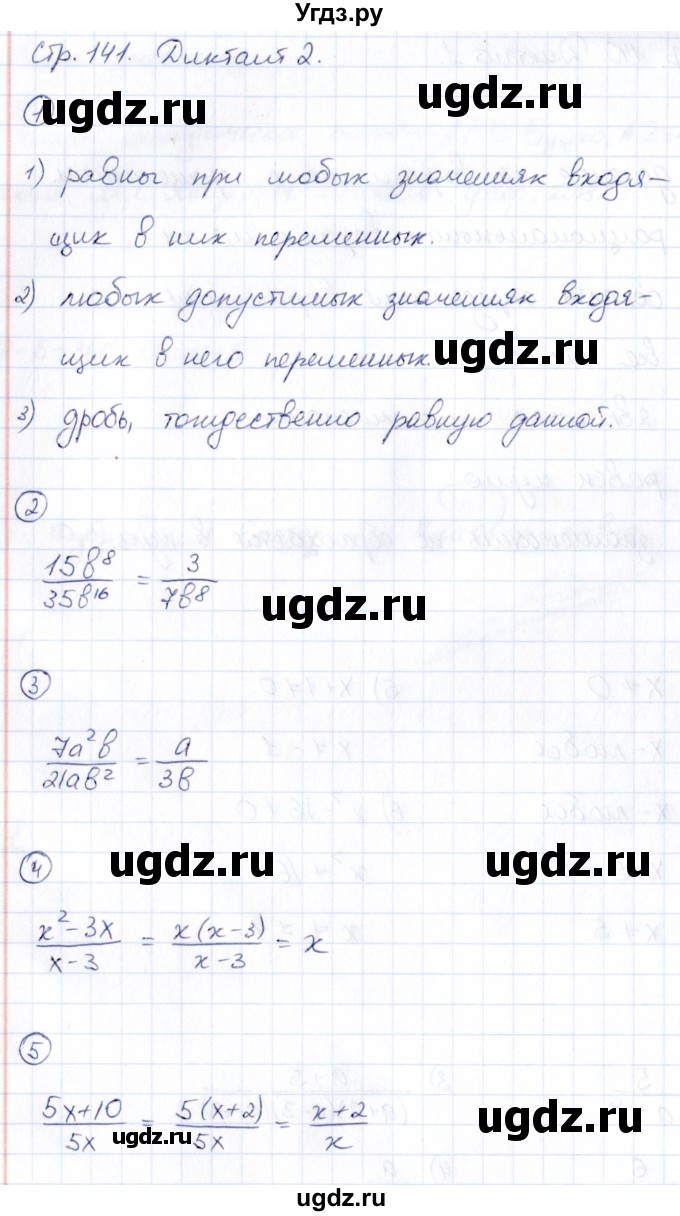 Угдз.ру
Стр. 141. Диктант 2.
ugdz.ru ugdz.ru
1
1) равны при любых значениях входя-
щих в них переменных.
2) любых допустимых значениях входя-
щих в него переменных.
ugdz.ru
3) дробь, тождественно равную данной.
2
15b⁸/35b¹⁶ = 3/7b⁸
ugdz.ru
3
7a²b/21ab² = a/3b
4
ugdz.ru ugdz.ru
x²-3x/x-3 = x(x-3)/x-3 = x
5
5x+10/5x = 5(x+2)/5x = x+2/x
ugdz.ru ugdz.ru
ugdz.ru